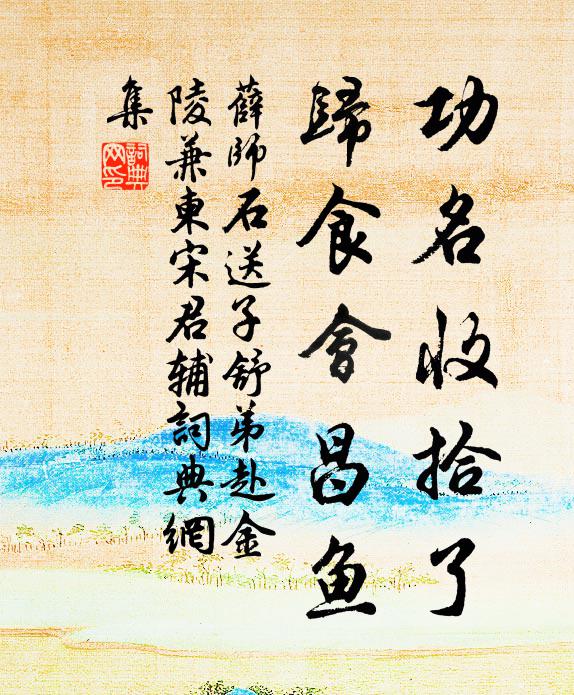 功名收拾了
歸食會昌魚
薛師石送子舒弟赴金
陵兼東宋君輔詞典網
集
詞典
网印